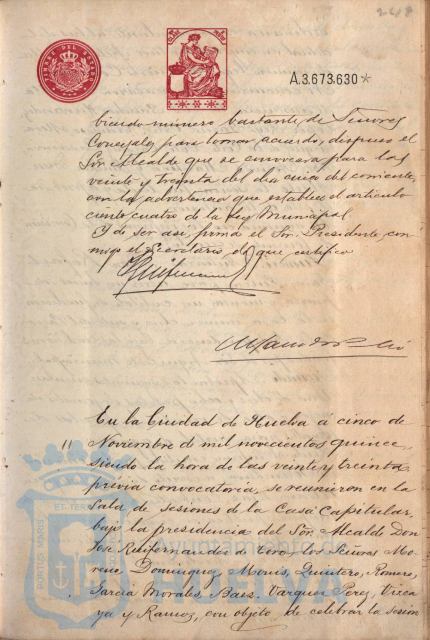 2618
TIMBRE DEL ESTADO
A.3.673.630*
biendo número bastante, de Señores
Concejales para tomar acuerdo, dispuso el
Sor. Alcalde que se convocara para las
veinte y treinta del dia cinco del corriente,
con la advertencia que establece el articulo
ciento cuatro de la ley Municipal
Y de ser asi, firma el Sr. Presidente, con-
migo el Secretario, de que certifico
En la Ciudad de Huelva a cinco de
Noviembre de mil novecientos quince,
siendo la hora de las veinte y treinta
previa convocatoria, se reunieron en la
Sala de sesiones de la Casa Capitular
bajo la presidencia del Sor. Alcalde Don
José Ruifernandez de Toro, los Señores Mo-
reno, Dominguez, Monis, Quintero, Romero,
Garcia Morales, Baez, Vazquez Perez, Vizca
ya y Ramos, con objeto de celebrar la sesión
PORTUS MARIS ET TERRÆ
Ayuntamiento